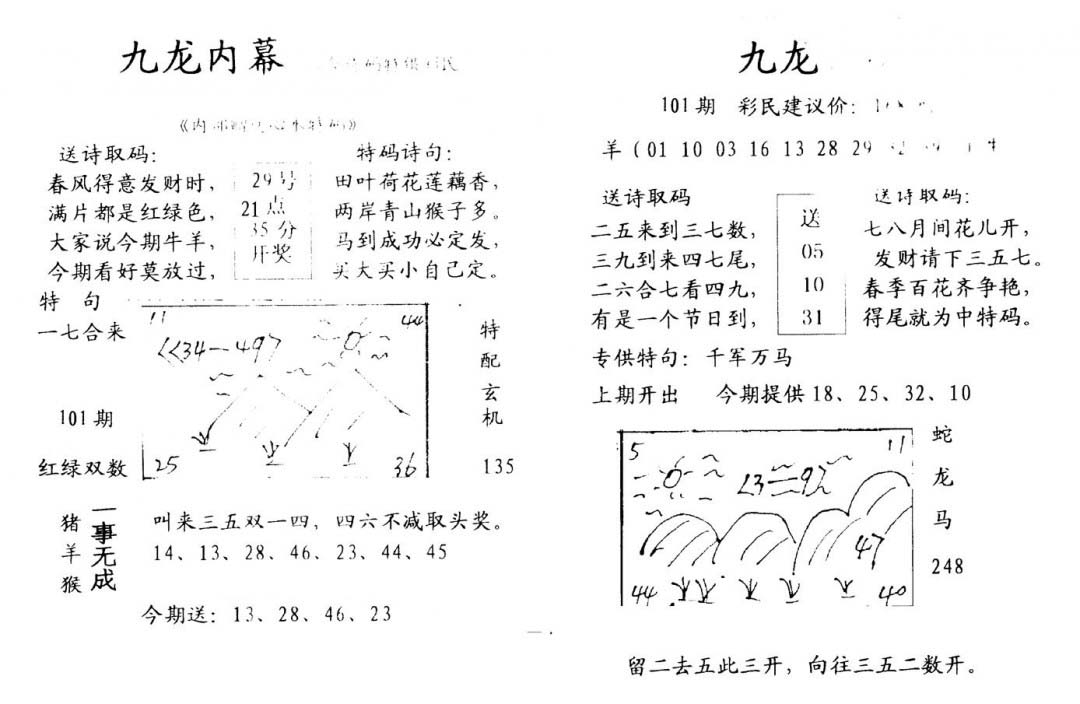 九龙内幕
送诗取码：
春风得意发财时，
满片都是红绿色，
大家说今期牛羊，
今期看好莫放过，
29号
21点
35分
开奖
特码诗句：
田叶荷花莲藕香，
两岸青山猴子多。
马到成功必定发，
买大买小自己定。
特 句
一七合来
101期
红绿双数
11
44
34—49
25
36
特配玄机
135
猪羊猴
一事无成
叫来三五双一四，四六不减取头奖。
14、13、28、46、23、44、45
今期送：13、28、46、23
九龙
101期 彩民建议价：
羊（01 10 03 16 13 28 29
送诗取码
二五来到三七数，
三九到来四七尾，
二六合七看四九，
有是一个节日到，
送
05
10
31
送诗取码：
七八月间花儿开，
发财请下三五七。
春季百花齐争艳，
得尾就为中特码。
专供特句：千军万马
上期开出 今期提供18、25、32、10
5
11
47
44
40
蛇龙马
248
留二去五此三开，向往三五二数开。